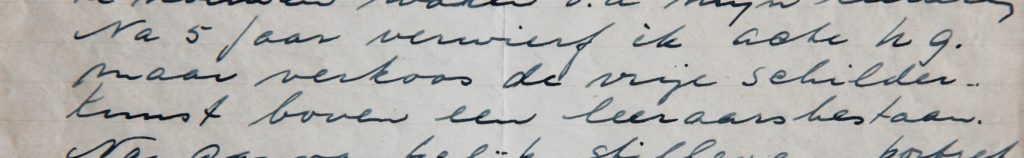 waren o.a. mijn
Na 5 jaar verwierf ik acte h g.
maar verkoos de vrije schilder-
kunst boven een leeraarsbestaan.
Na